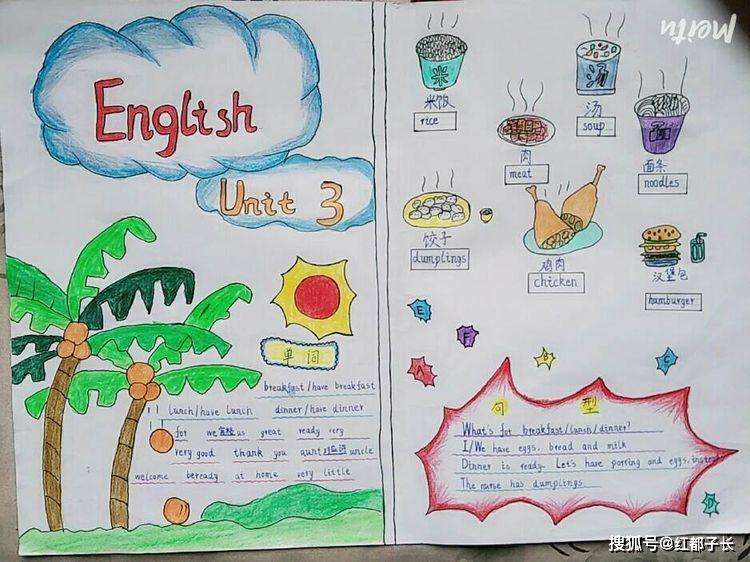 English
Unit 3
单词
breakfast/have breakfast
lunch/have lunch dinner/have dinner
for we us great ready very
very good thank you aunt 对应词 uncle
welcome beready at home very little
Meitu
米
米饭
rice
汤
汤
soup
肉
meat
面
面条
noodles
饺子
dumplings
鸡肉
chicken
汉堡包
hamburger
E
F
A
B
C
D
句型
What's for breakfast/lunch/dinner?
I/We have eggs, bread and milk
Dinner is ready. Let's have and eggs,
The nurse has dumplings
搜狐号@红都子长